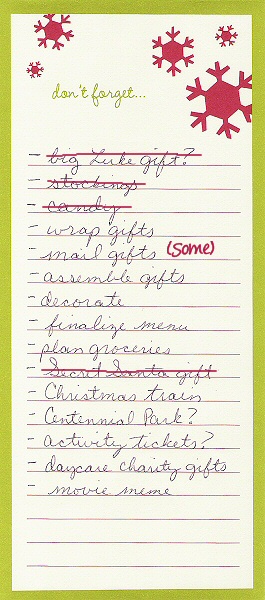 don't forget...
- big Luke gift?
- stockings
- candy
- wrap gifts
- mail gifts (Some)
- assemble gifts
- decorate
- finalize menu
- plan groceries
- Secret Santa gift
- Christmas train
- Centennial Park?
- activity tickets?
- daycare charity gifts
- movie meme